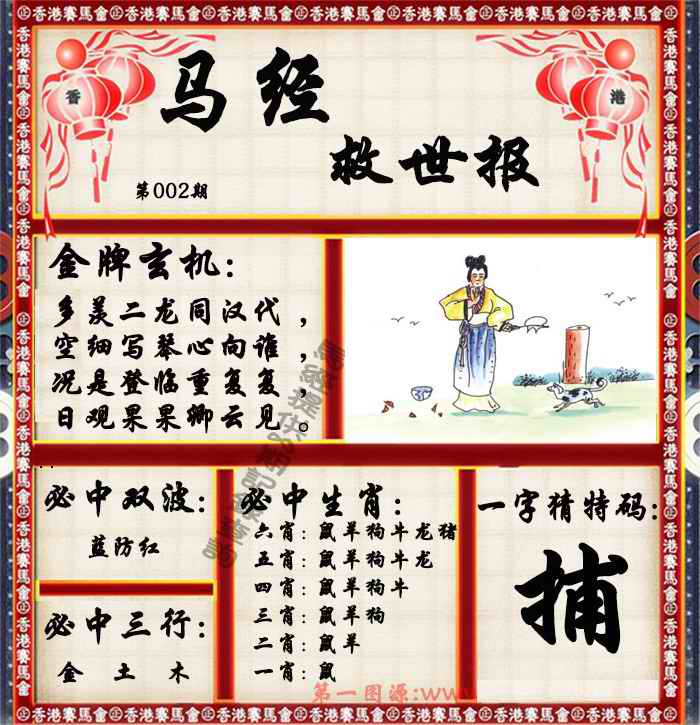 香港賽馬會
香
港
马经
救世报
第002期
金牌玄机:
多羡二龙同汉代，
空细写琴心向谁，
况是登临重复复，
日观果果卿云见。
必中双波:
蓝防红
必中三行:
金 土 木
必中生肖:
六肖: 鼠羊狗牛龙猪
五肖: 鼠羊狗牛龙
四肖: 鼠羊狗牛
三肖: 鼠羊狗
二肖: 鼠羊
一肖: 鼠
一字猜特码:
捕
第一图源:www